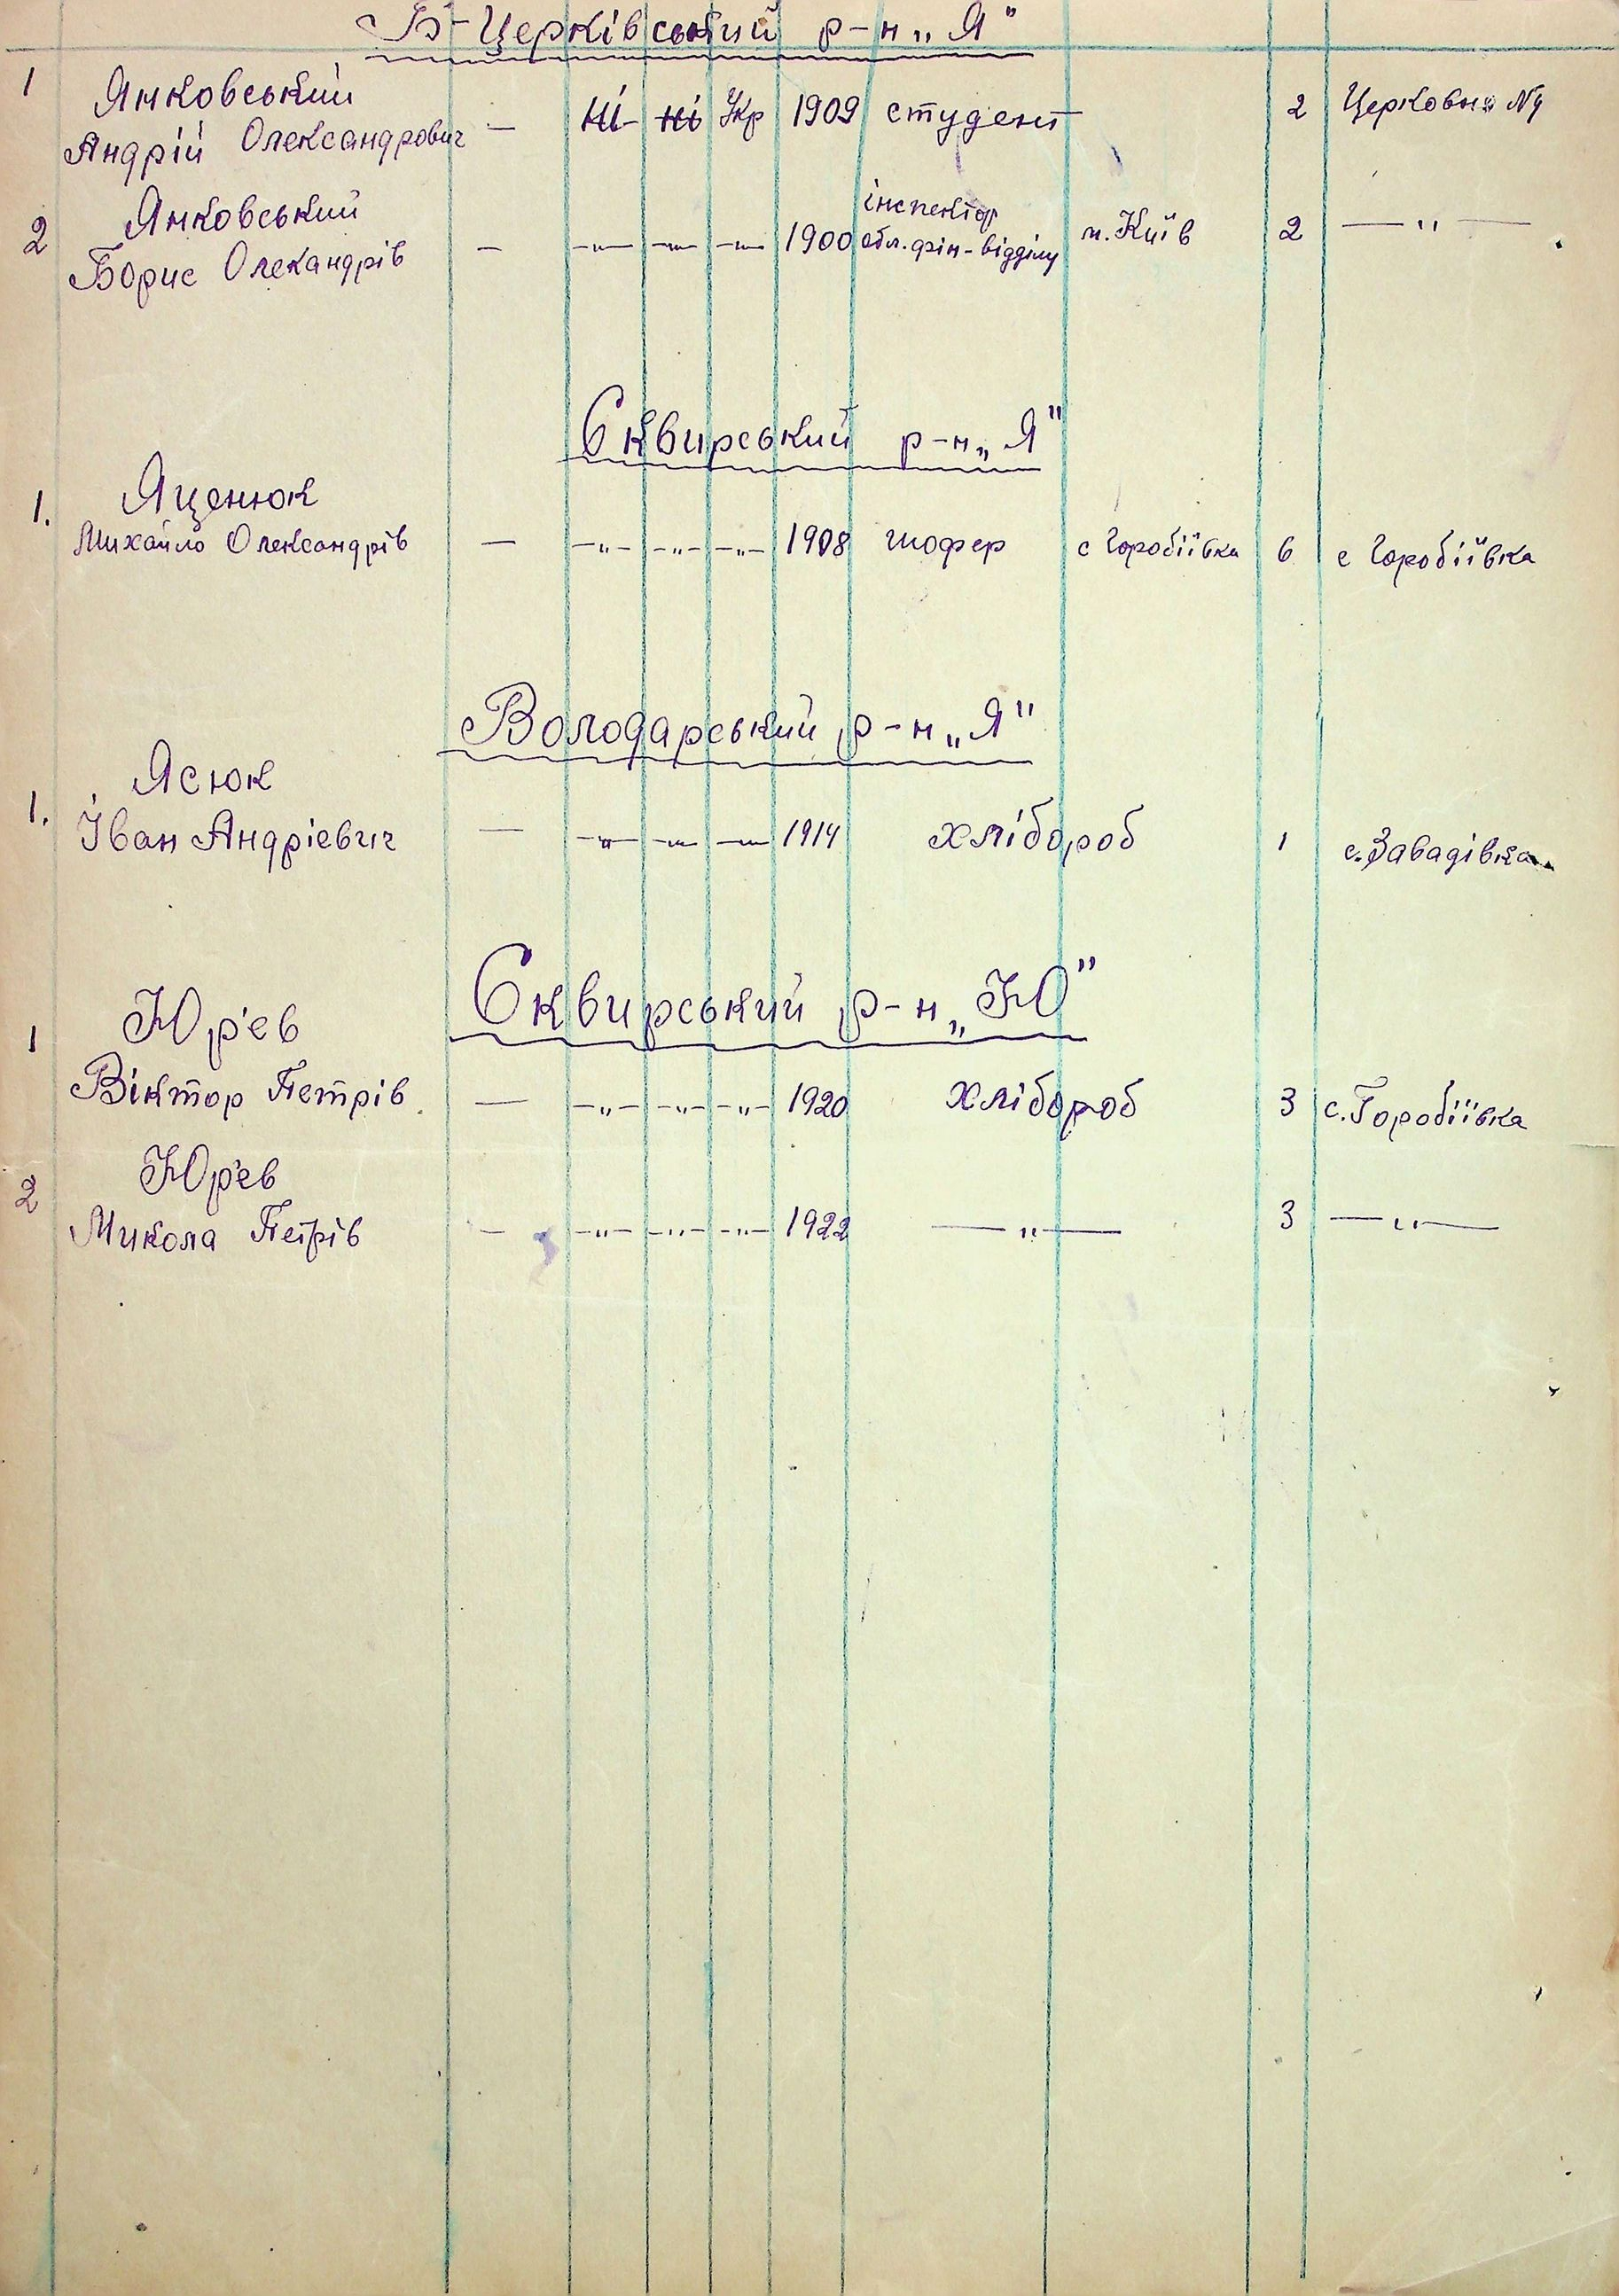 Б-Церківський р-н „Я"
1 Янковський
Андрій Олександрович — ні ні Укр 1909 студент 2 Церковна №4
2 Янковський
Борис Олекандрів — —"— —"— —"— 1900 інспектор обл. фін-відділу м. Київ 2 —"—
Сквирський р-н „Я"
1. Яценюк
Михайло Олександрів — —"— —"— —"— 1908 шофер с Горобіївка 6 с Горобіївка
Володарський р-н „Я"
1. Ясюк
Іван Андрієвич — —"— —"— —"— 1914 хлібороб 1 с. Завадівка
Сквирський р-н „Ю"
1 Юр'єв
Віктор Петрів — —"— —"— —"— 1920 хлібороб 3 с. Горобіївка
2 Юр'єв
Микола Петрів — —"— —"— —"— 1922 —"— 3 —"—